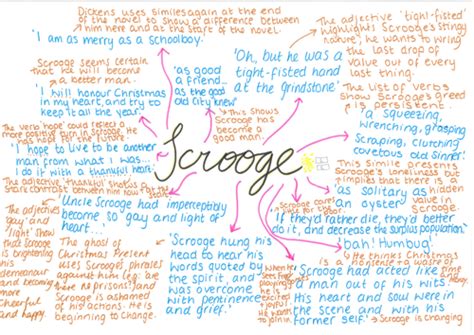 Dickens uses similes again at the end
of the novel to show a difference between
him here and at the start of the novel.
'I am as merry as a schoolboy.'
Scrooge seems certain
that he will become
a better man.
'I will honour Christmas
in my heart, and try to
keep it all the year.'
The verb 'hope' could reflect a
more positive turn in Scrooge. He
has hope for the future.
'I hope to live to be another
man from what I was...
do it with a thankful heart.'
The adjective 'thankful' shows a
stark contrast between him now
'Uncle Scrooge had imperceptibly
become so gay and light of
heart.'
The adjectives
'gay' and
'light' show
that Scrooge
is brightening
his
demeanour
and
becoming
more
cheerful
and
happy.
The ghost of
Christmas Present
uses Scrooge's phrases
against him (e.g. 'are
there no prisons?') and
Scrooge is ashamed
of his actions. He is
beginning to change.
'as good
a friend...
as the good
old City knew'
This shows
Scrooge has
become a
good man.
Scrooge
'Oh, but he was a
tight-fisted hand
at the grindstone.'
The adjective 'tight-fisted'
highlights Scrooge's stingy
nature; he wants to wring
the last drop of
value out of every
last thing.
The list of verbs
show Scrooge's greed
is persistent.
'a squeezing,
wrenching, grasping,
scraping, clutching
covetous old sinner'
This simile presents
Scrooge's loneliness but
implies that there is a
hidden
value in
him.
'as solitary as
an oyster'
Scrooge
for the poor.
'if they'd rather die, they'd better
do it, and decrease the surplus population.'
'Bah! Humbug.'
He thinks Christmas
is nonsense + a waste of
'Scrooge hung his
head to hear his
words quoted by
the spirit, and
was overcome
with penitence
and grief.'
When he
sees
he
excited
joyful.
He wants
to join in.
'Scrooge had acted like
a man out of his wits.
His heart and soul were in
the scene and with his
former self.'